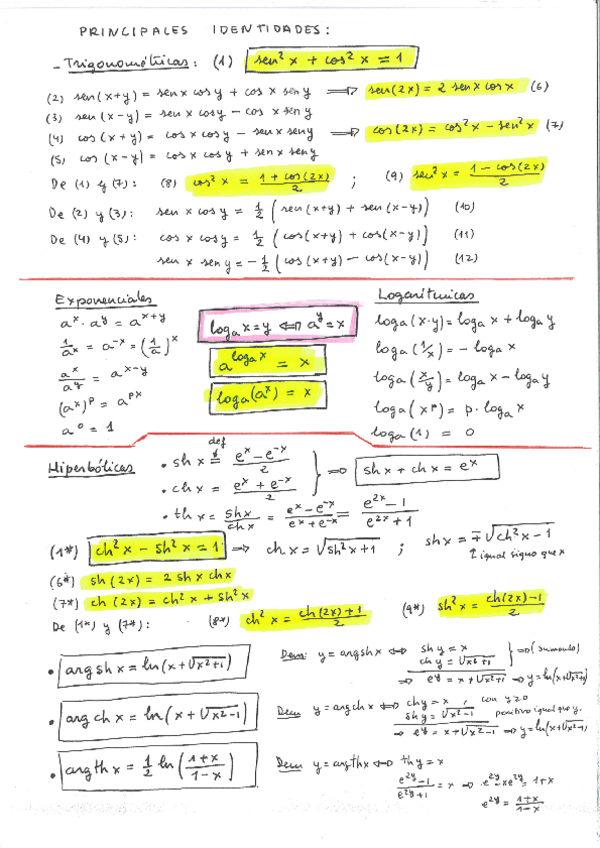 PRINCIPALES IDENTIDADES:
- Trigonométricas: (1) sen² x + cos² x = 1
(2) sen(x+y) = senx cosy + cosx seny ⟹ sen(2x) = 2 senx cosx (6)
(3) sen(x-y) = senx cosy - cosx seny
(4) cos(x+y) = cosx cosy - senx seny ⟹ cos(2x) = cos²x - sen²x (7)
(5) cos(x-y) = cosx cosy + senx seny
De (1) y (7): (8) cos²x = (1+cos(2x))/2 ; (9) sen²x = (1-cos(2x))/2
De (2) y (3): senx cosy = 1/2 (sen(x+y) + sen(x-y)) (10)
De (4) y (5): cosx cosy = 1/2 (cos(x+y) + cos(x-y)) (11)
senx seny = -1/2 (cos(x+y) - cos(x-y)) (12)
Exponenciales
aˣ · aʸ = aˣ⁺ʸ
1/aˣ = a⁻ˣ = (1/a)ˣ
aˣ/aʸ = aˣ⁻ʸ
(aˣ)ᵖ = aᵖˣ
a⁰ = 1
logₐx = y ⟺ aʸ = x
a^(logₐx) = x
logₐ(aˣ) = x
Logarítmicas
logₐ(x·y) = logₐx + logₐy
logₐ(1/x) = -logₐx
logₐ(x/y) = logₐx - logₐy
logₐ(xᵖ) = p·logₐx
logₐ(1) = 0
Hiperbólicas
def
• shx = (eˣ - e⁻ˣ)/2
• chx = (eˣ + e⁻ˣ)/2 ⟹ shx + chx = eˣ
• thx = shx/chx = (eˣ - e⁻ˣ)/(eˣ + e⁻ˣ) = (e²ˣ - 1)/(e²ˣ + 1)
(1*) ch²x - sh²x = 1 ⟹ chx = √(sh²x+1) ; shx = ∓√(ch²x-1)
↑ igual signo que x
(6*) sh(2x) = 2 shx chx
(7*) ch(2x) = ch²x + sh²x
De (1*) y (7*): (8*) ch²x = (ch(2x)+1)/2 (9*) sh²x = (ch(2x)-1)/2
• argshx = ln(x+√(x²+1))
Dem: y = argshx ⟺ shy = x
chy = √(x²+1) } ⟹ (sumando)
⟹ eʸ = x+√(x²+1) ⟹ y = ln(x+√(x²+1))
• argchx = ln(x+√(x²-1))
Dem y = argchx ⟺ chy = x, con y≥0
shy = √(x²-1) positivo igual que y.
⟹ eʸ = x+√(x²-1) ⟹ y = ln(x+√(x²-1))
• argthx = 1/2 ln((1+x)/(1-x))
Dem y = argthx ⟺ thy = x
(e²ʸ-1)/(e²ʸ+1) = x ⟹ e²ʸ - xe²ʸ = 1+x
e²ʸ = (1+x)/(1-x)